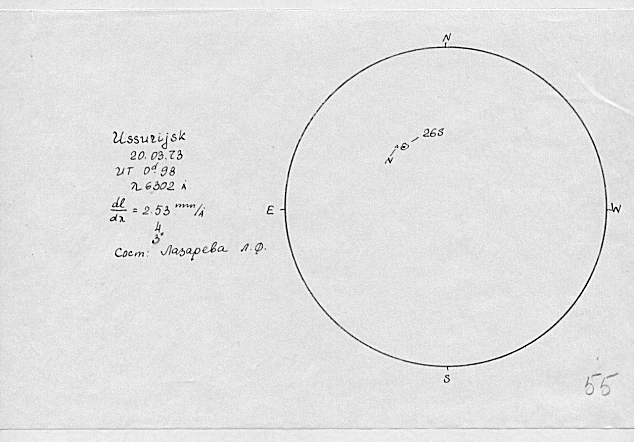 Ussurijsk
20.03.73
UT 0ᵈ.98
λ 6302 Å
dl/dλ = 2.53 mm/Å
4
3"
Сост: Лазарева Л.Ф.
N
26S
N
E
W
S
55